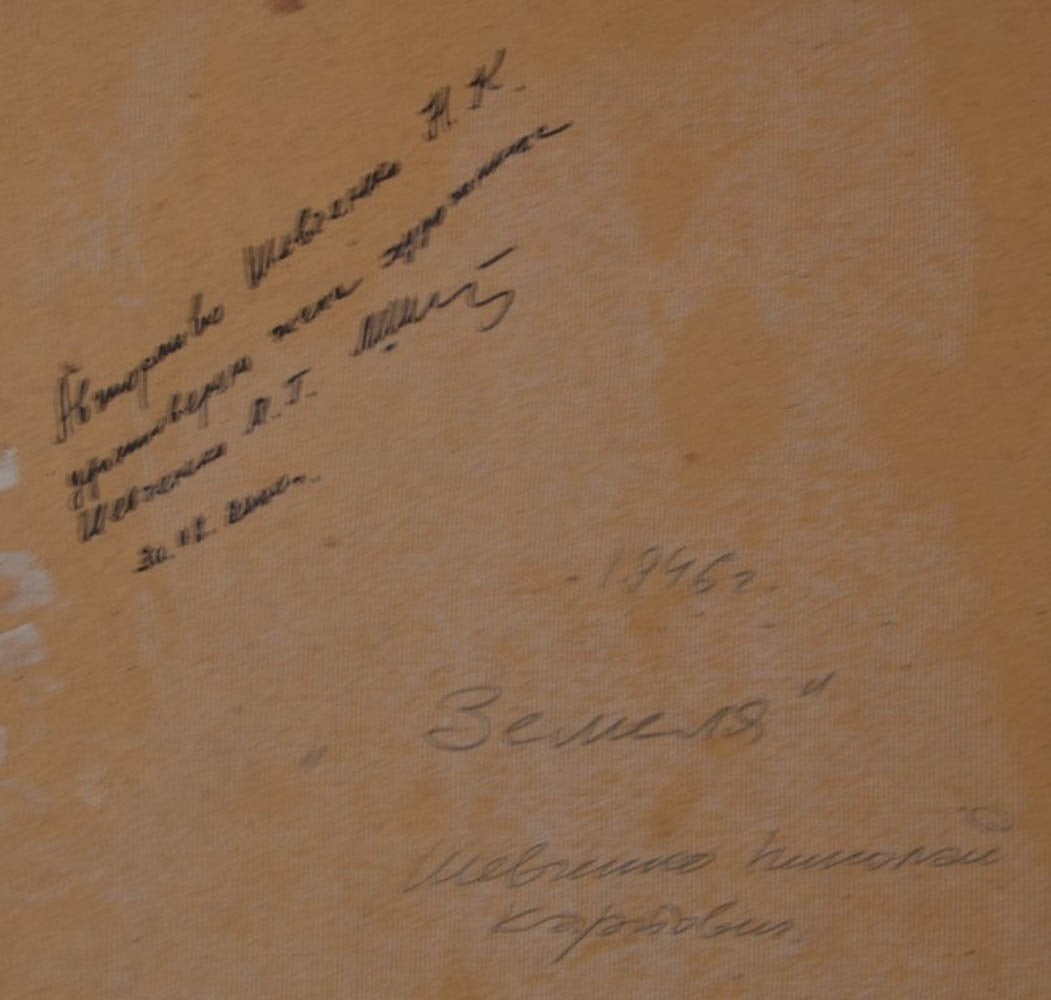 Авторство Шевченко Н. К.
удостоверяю жена художника
Шевченко Л. Г.
30. 2000г.
1946 г.
"Земеля"
Шевченко Николай
Карпович